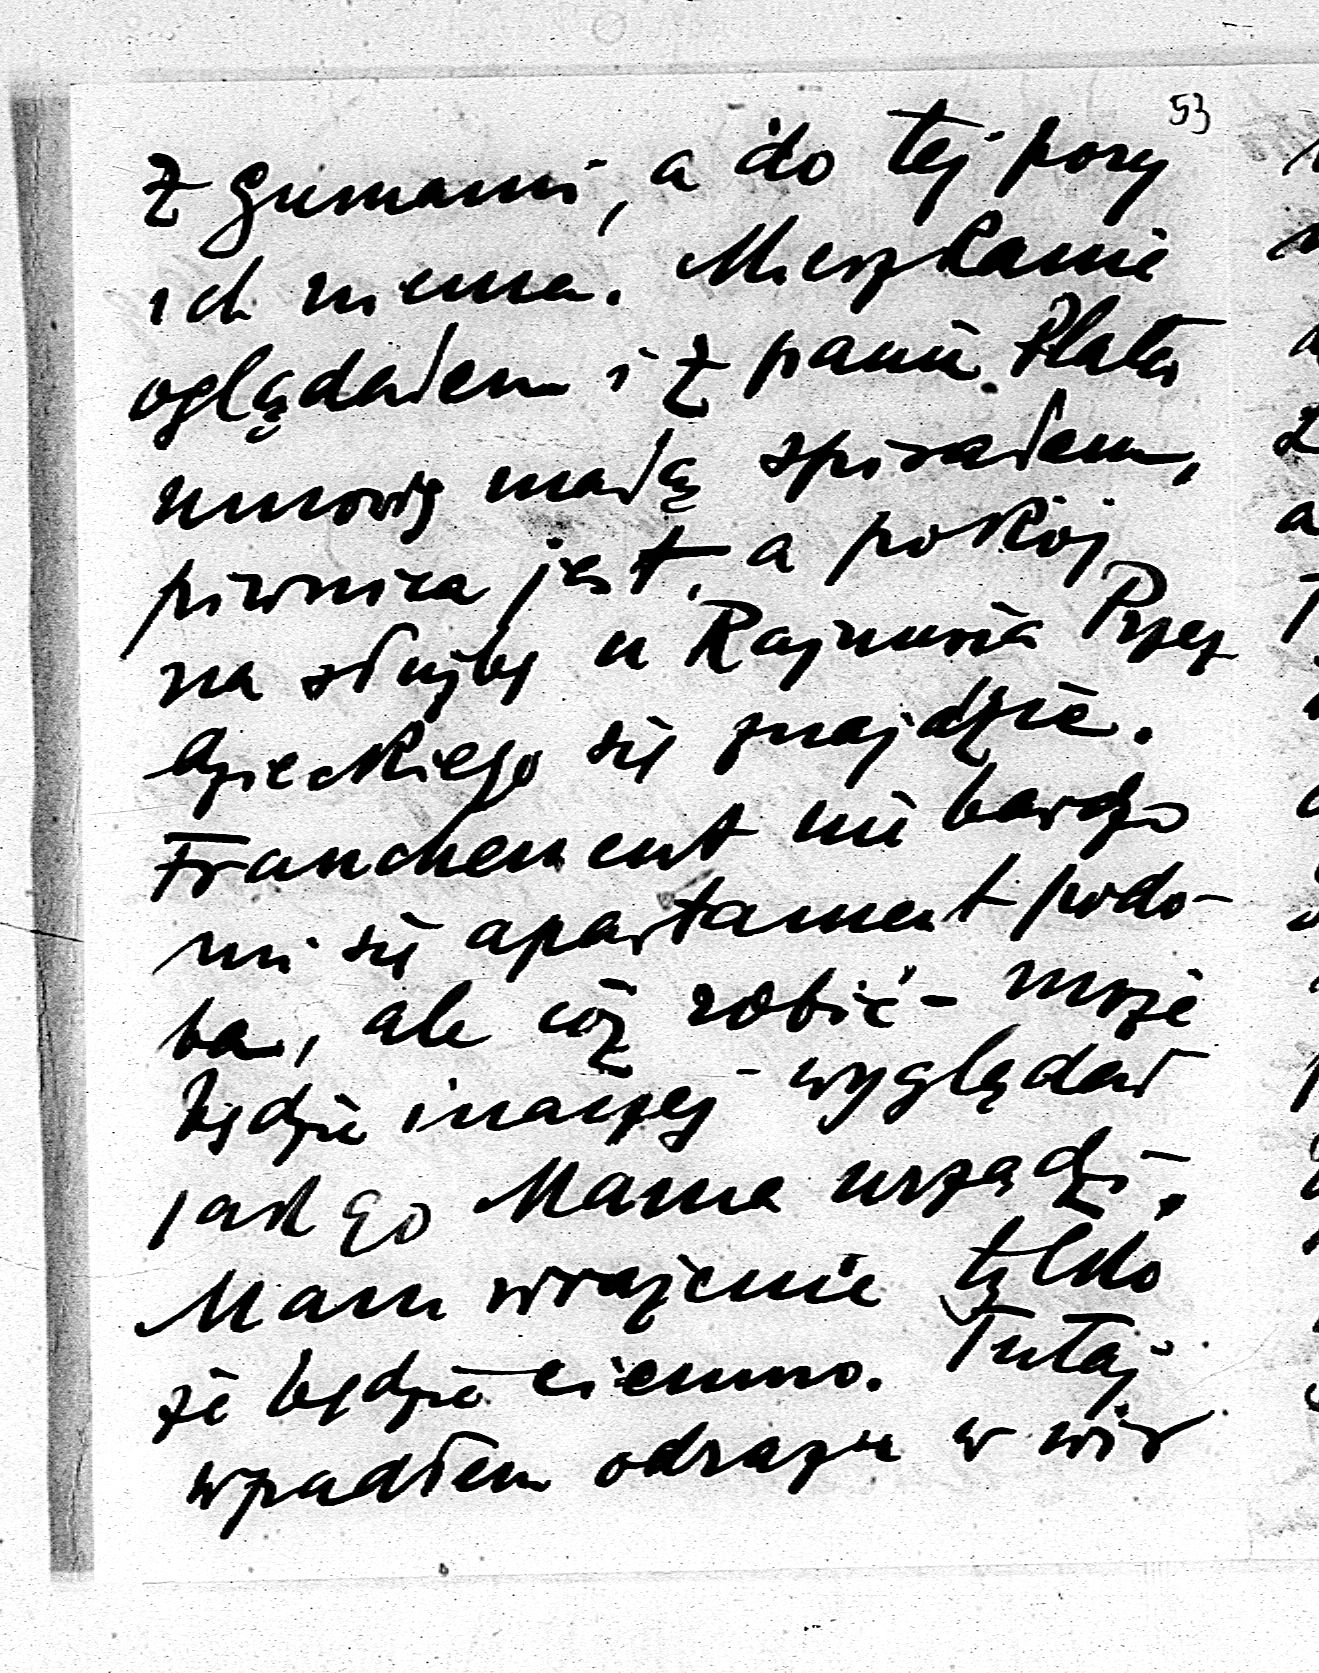 53
z gumami, a do tej pory
ich niema. Mieszkanie
oglądałem i z panią Platą
umowę małą spisałem,
piwnica jest, a pokój
na służbę u Rajmunda Przez
dzieckiego się znajdzie.
Franchement nie bardzo
mi się apartament podo-
ba, ale cóż robić - może
będzie inaczej wyglądał
jak go Mama urządzi.
Mam wrażenie tylko
że będzie ciemno. Tutaj
wpadłem odrazu w wir